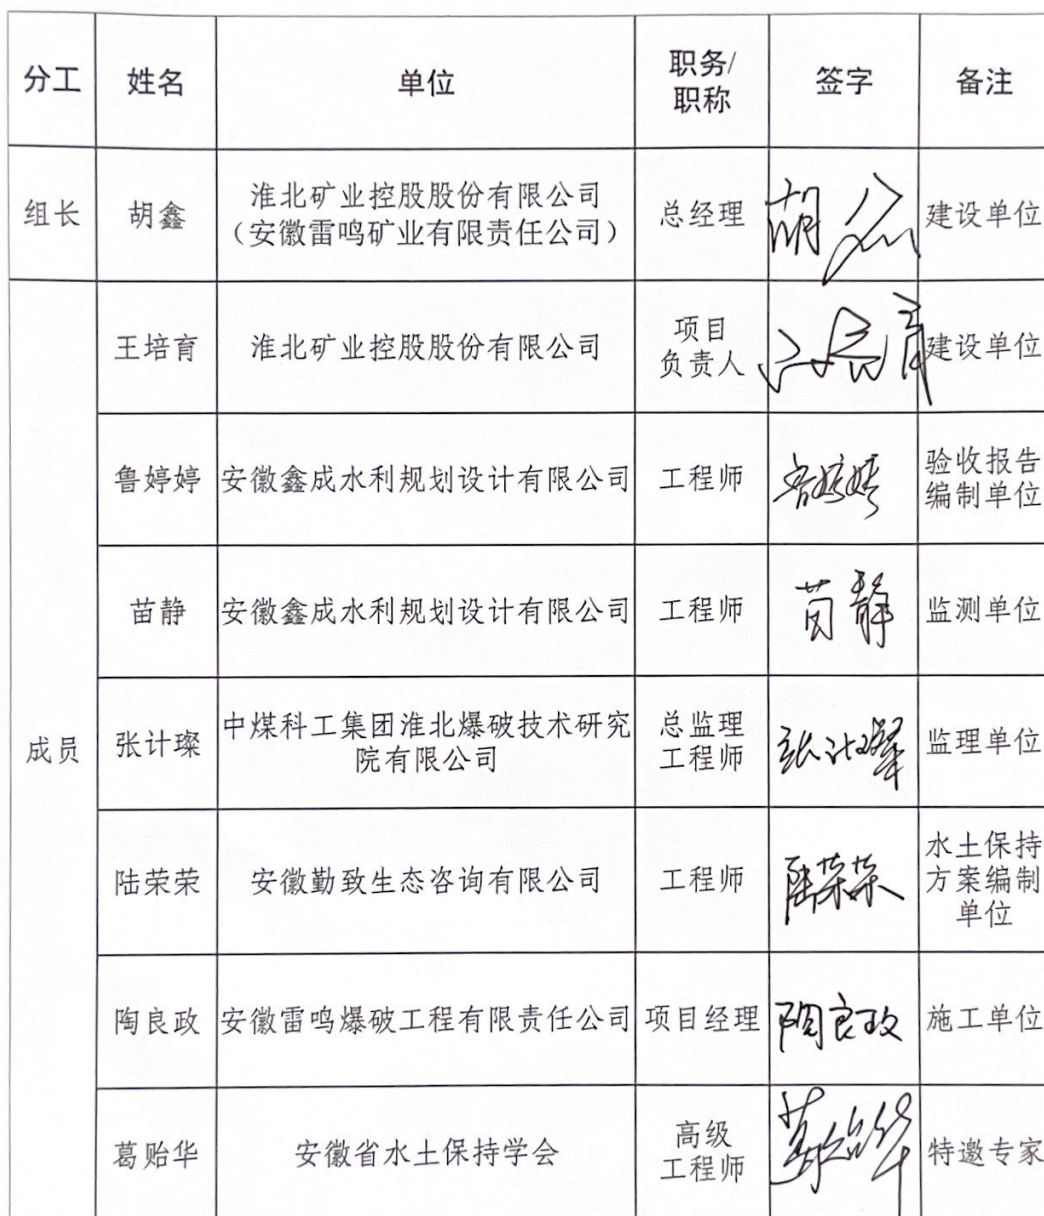 分工 姓名 单位 职务/职称 签字 备注
组长 胡鑫 淮北矿业控股股份有限公司 总经理 胡鑫 建设单位
（安徽雷鸣矿业有限责任公司）
成员
王培育 淮北矿业控股股份有限公司 项目 建设单位
负责人
鲁婷婷 安徽鑫成水利规划设计有限公司 工程师 鲁婷婷 验收报告
编制单位
苗静 安徽鑫成水利规划设计有限公司 工程师 苗静 监测单位
张计璨 中煤科工集团淮北爆破技术研究 总监理 张计璨 监理单位
院有限公司 工程师
陆荣荣 安徽勤致生态咨询有限公司 工程师 陆荣荣 水土保持
方案编制
单位
陶良政 安徽雷鸣爆破工程有限责任公司 项目经理 陶良政 施工单位
葛贻华 安徽省水土保持学会 高级 葛贻华 特邀专家
工程师